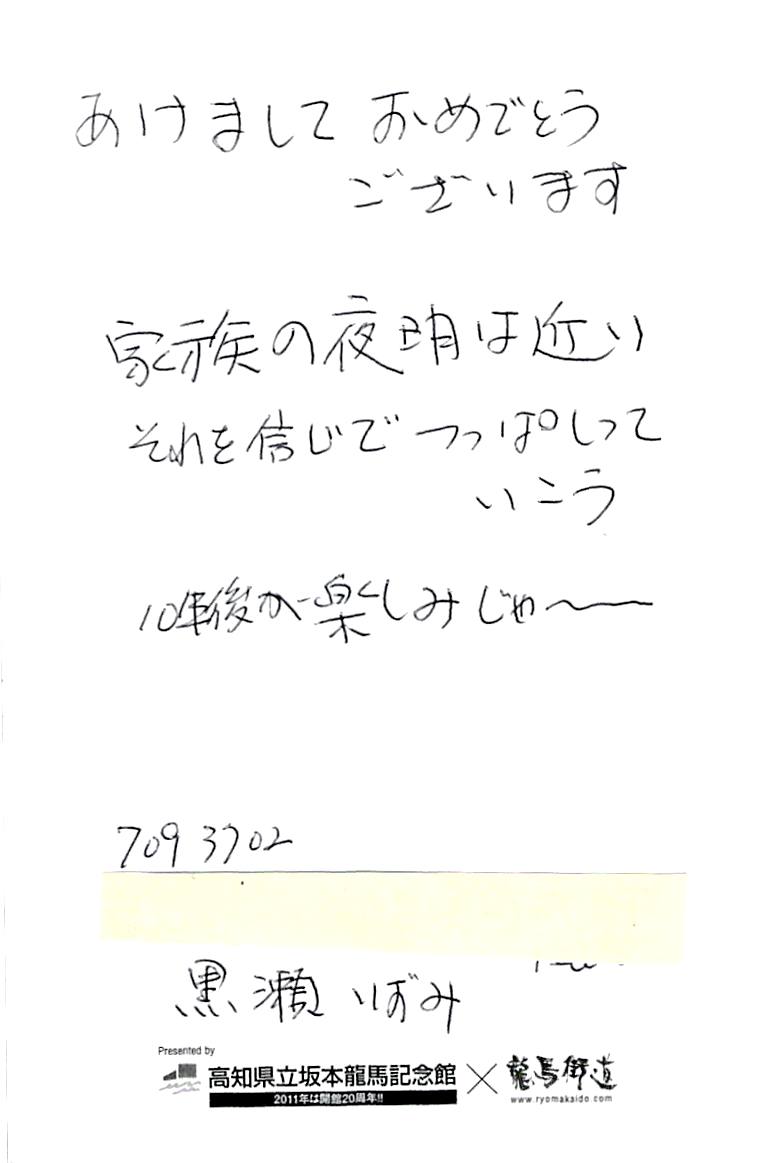 あけまして おめでとう
ございます
家族の夜明は近い
それを信じで つっぱしって
いこう
10年後が楽しみじゃ〜
709 3702
黒瀬 いずみ
Presented by
高知県立坂本龍馬記念館 × 龍馬街道
2011年は開館20周年!!
www.ryomakaido.com